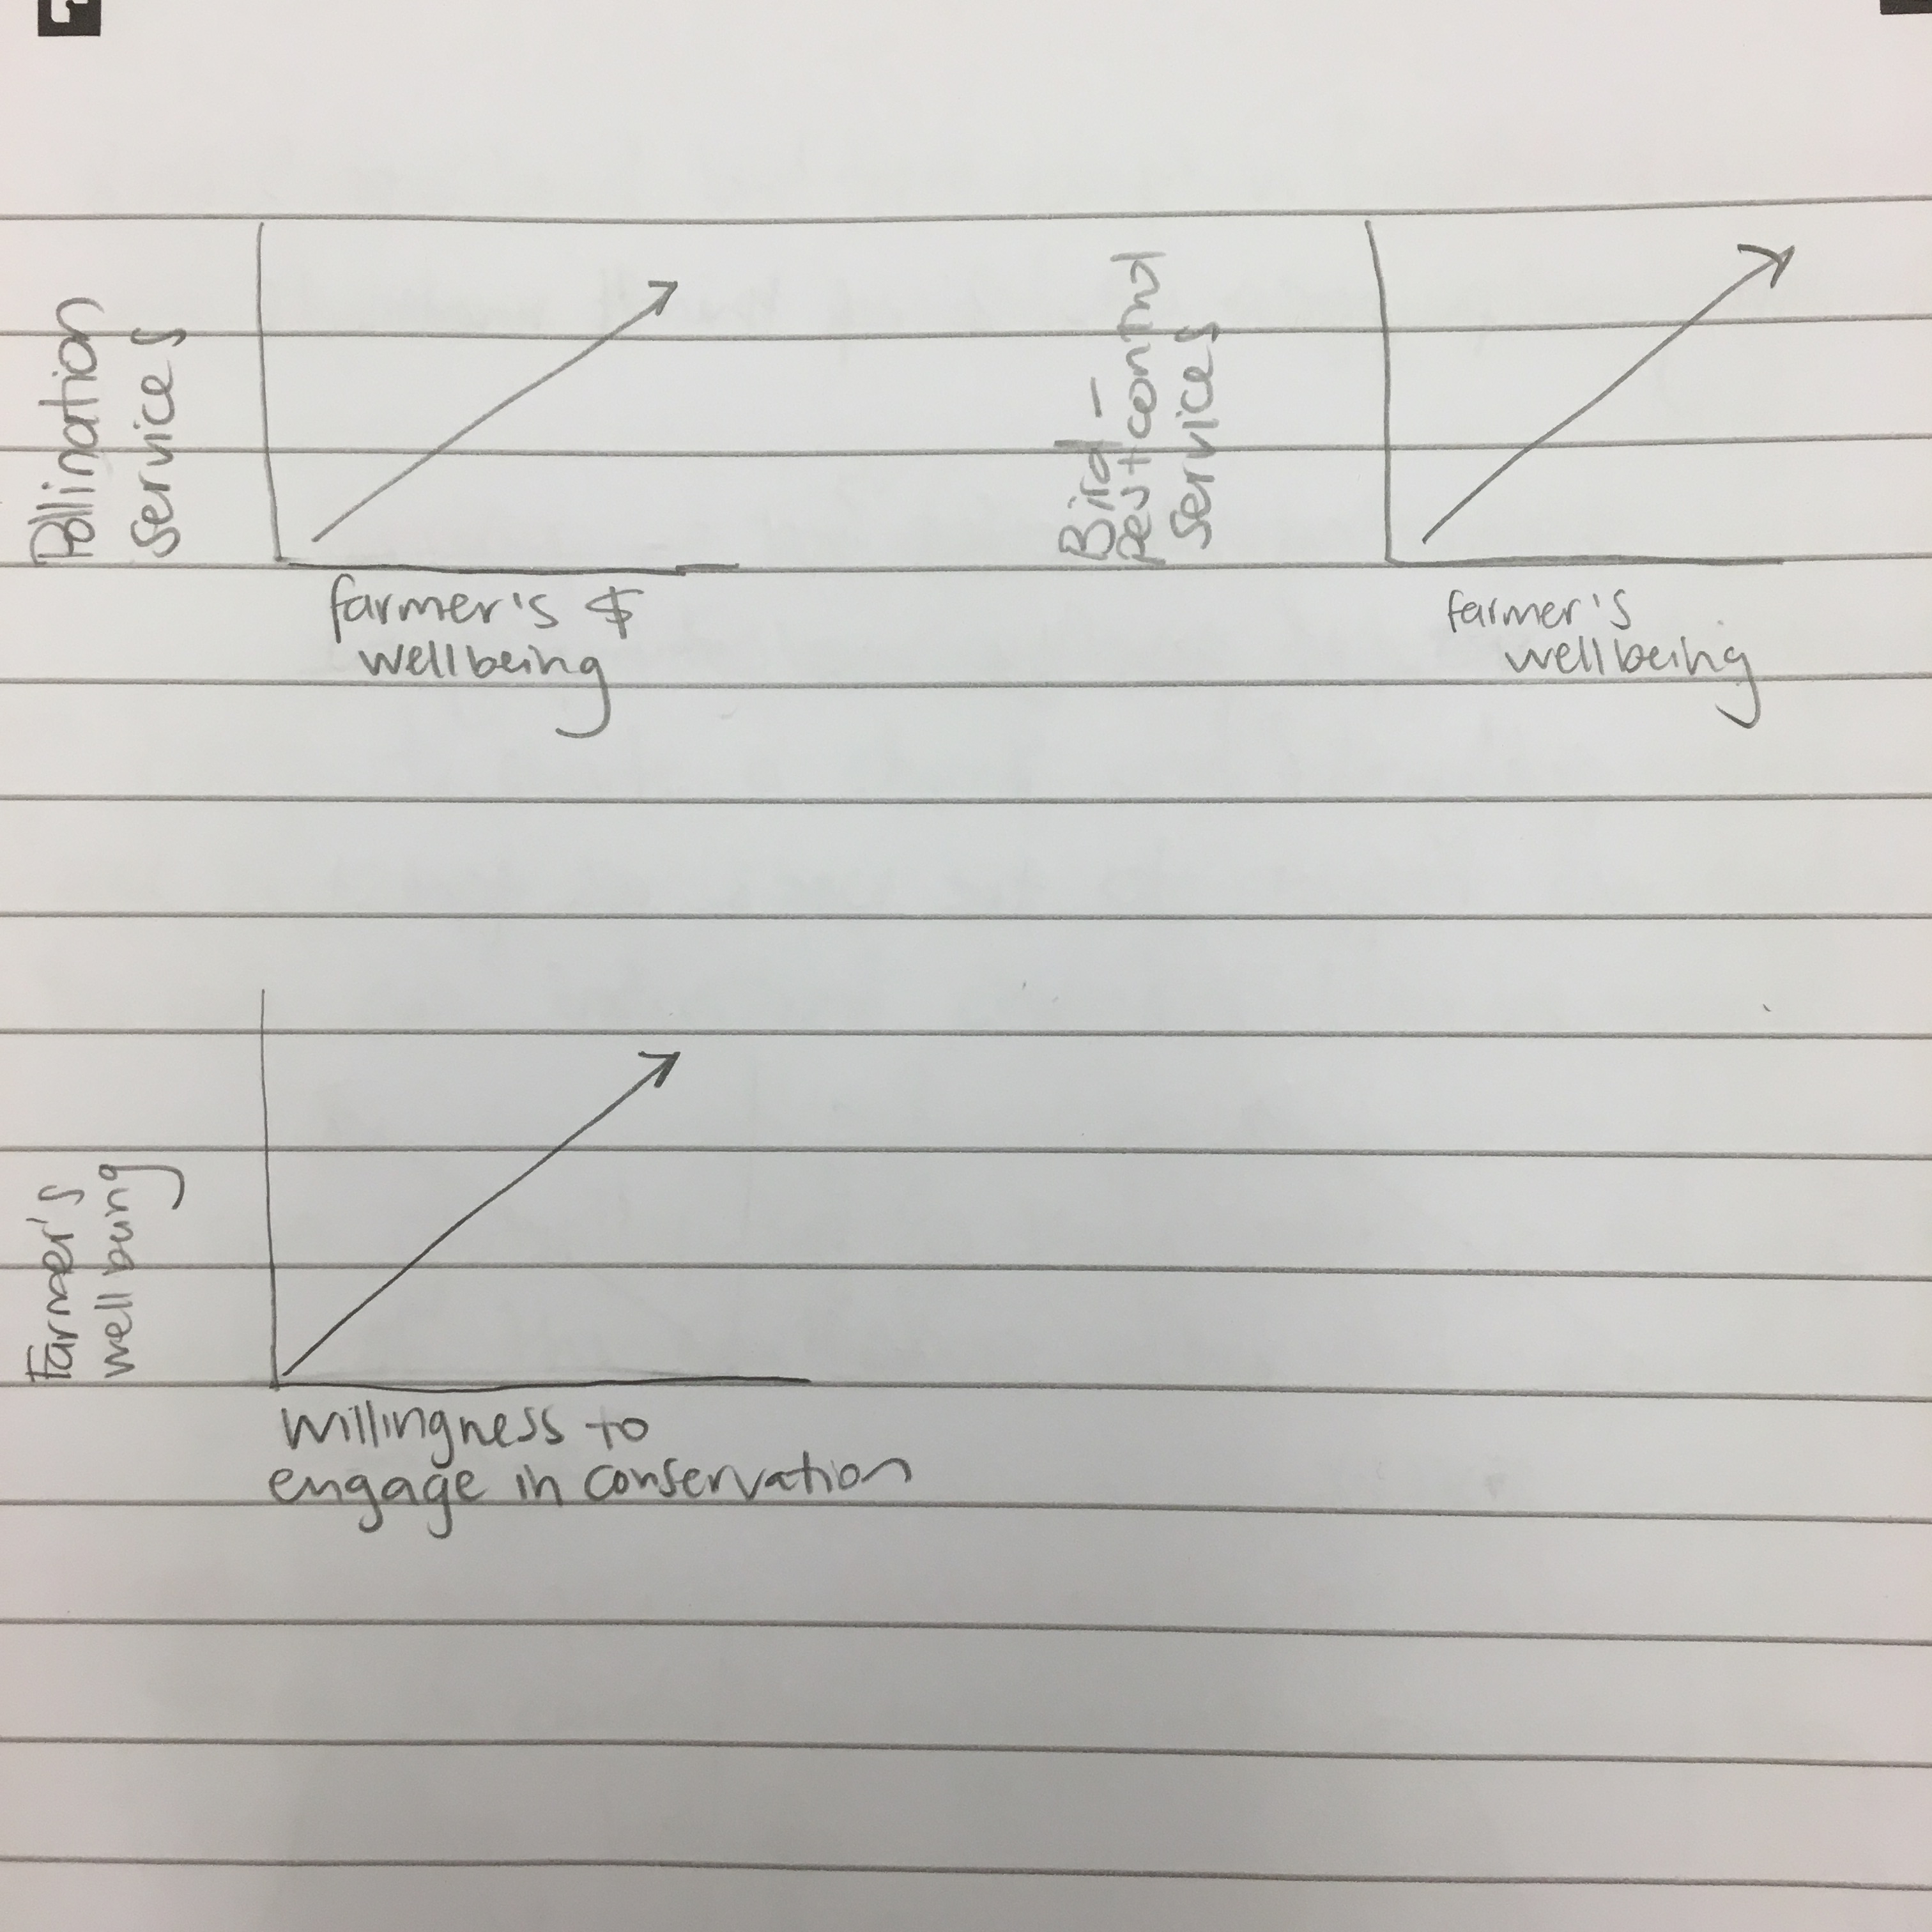 Pollination
services
farmer's $
wellbeing
Bird-
pest control
services
farmer's
wellbeing
Farmer's
well being
Willingness to
engage in conservation